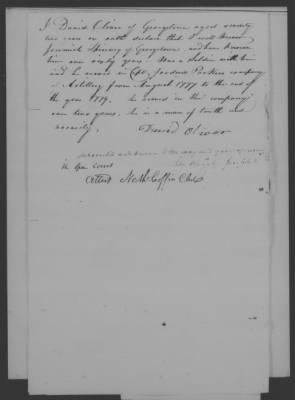 I David Oliver of Georgetown aged seventy
two years on oath declare that I well knew
Jeremiah Spinney of Georgetown, and have known
him over sixty years. Was a Soldier with him
and he served in Capt. Jordan Parkers company
of Artillery from August 1777 to the end of
the year 1779. he served in this company
over two years. he is a man of truth and
veracity.
David Oliver
subscribed and sworn to the day and year
in open court
Attest N. Coffin Clk